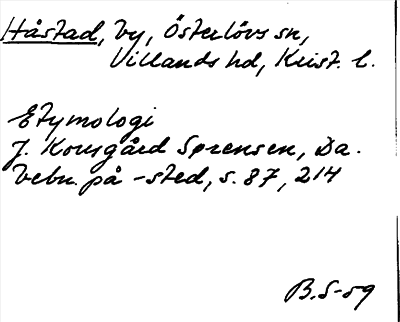 Håstad, by, Österlövs sn,
Villands hd, Krist. l.
Etymologi
J. Kousgård Sørensen, Da.
bebn. på -sted, s. 87, 214
B.S-59